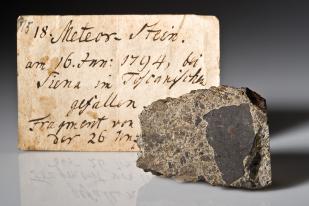 18. Meteor Stein.
am 16. Jun: 1794, bei
Siena im Toscanischen
gefallen
Fragment von
der 26